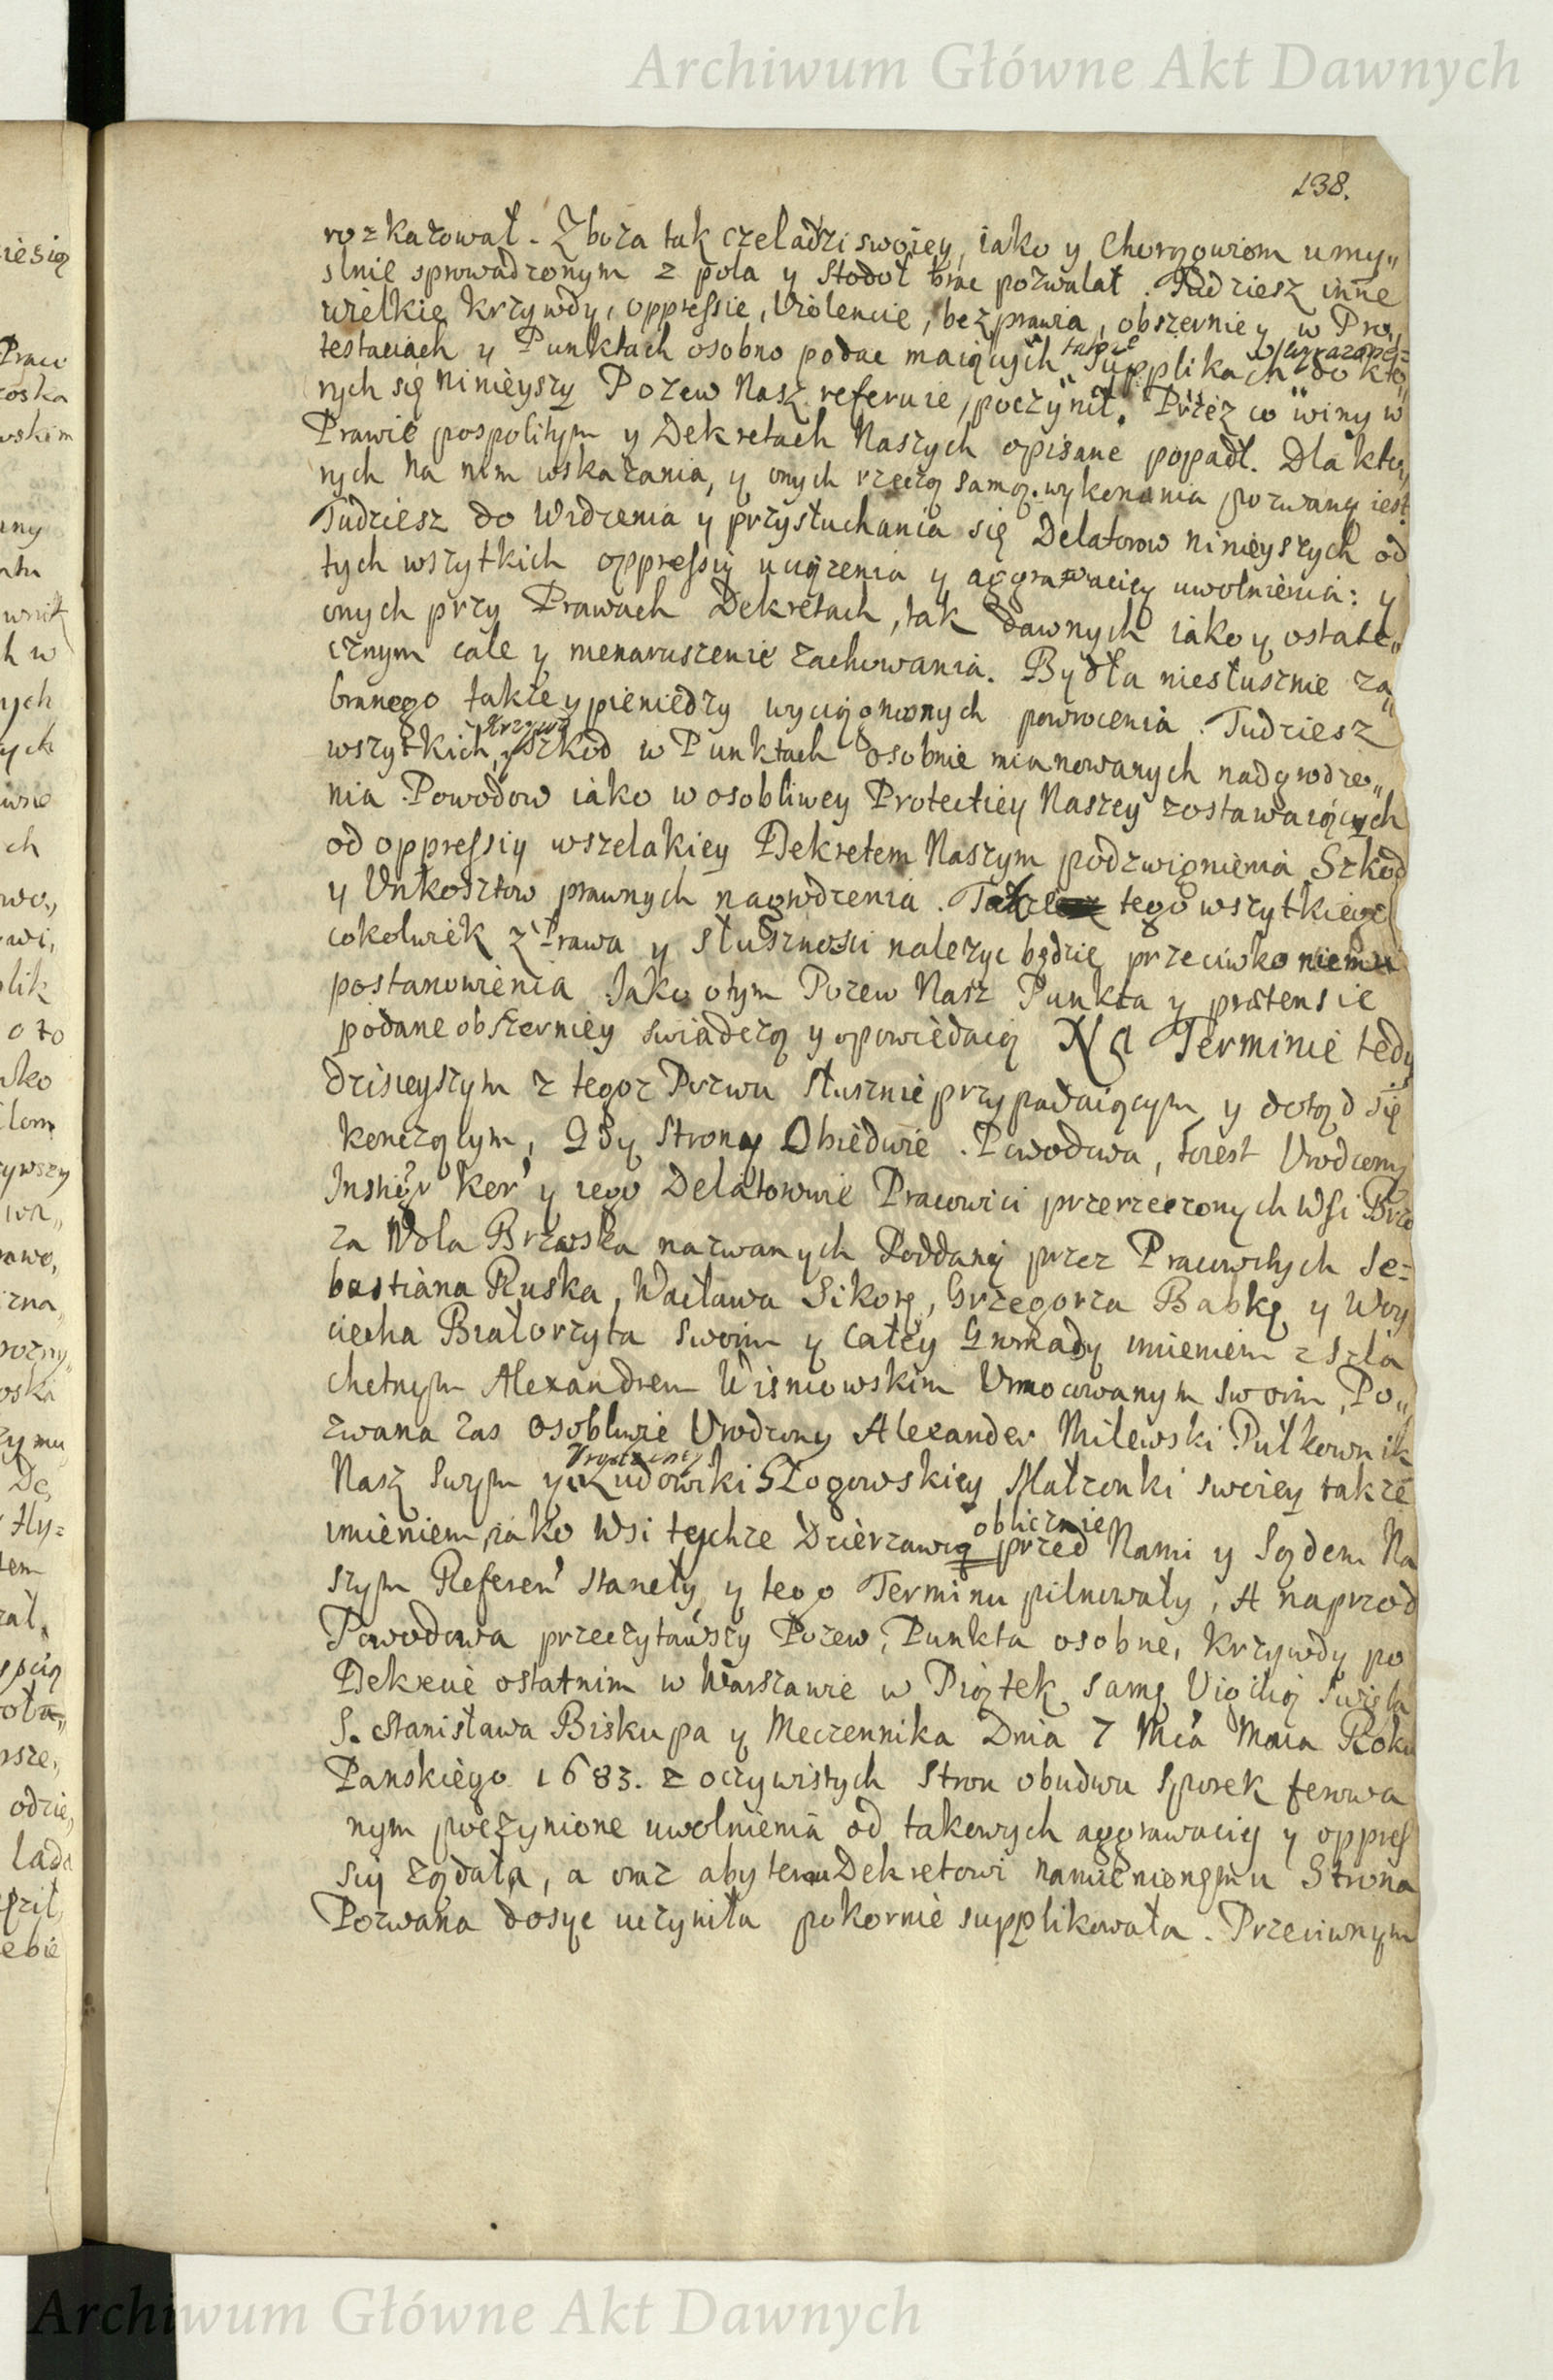 Archiwum Główne Akt Dawnych
138.
rozkazował. Zboza tak czeladzi swoiey, iako y Chorągwiom umy„
slnie sprowadzonym z pola y stodoł brac pozwalał. Tudziesz inne
wielkie krzywdy, oppressie, Violencie, bezprawia, obszerniey w Pro„
testaciach y Punktach osobno podac maiących także Supplikach wyrazone do kto„
rych się ninieyszy Pozew Nasz referuie, poczynił. Przez co winy w
Prawie pospolitym y Dekretach Naszych opisane popadł. Dla kto„
rych na nim wskazania, y onych rzeczą samą wykonania pozwany iest
Tudziesz do Widzenia y przysłuchania się Delatorow ninieyszych od
tych wszytkich oppressiy uciązenia y aggrawaciey uwolnienia: y
onych przy Prawach Dekretach, tak dawnych iako y ostate„
cznym cale y nienaruszenie zachowania. Bydła niesłusznie za„
branego takze y pieniedzy wyciągnionych powrocenia. Tudziesz
wszytkich krzywd y szkod w Punktach osobnie mianowanych nadgrodze„
nia Powodow iako w osobliwey Protectiey Naszey zostawaiących
od oppressiy wszelakiey Dekretem Naszym podzwignienia Szkod
y Unkosztow prawnych nagrodzenia. Także tego wszytkiego
cokolwiek z Prawa y słusznosci nalezyc będzie przeciwko niemu
postanowienia Jako o tym Pozew Nasz Punkta y prætensie
podane obszerniey swiadczą y opowiedaią Na Terminie tedy
dzisieyszym z tegoz Pozwu słusznie przypadaiącym y dotąd się
konczącym, Gdy Strony Obiedwie. Powodowa, to iest Urodzony
Instigor Ker y iego Delatorowie Pracowici przerzeczonych Wsi Brzo
za Wola Brzoska nazwanych Poddani przez Pracowitych Se=
bastiana Ruska, Wacława Sikorę, Grzegorza Babkę y Woy
ciecha Białorzyta swoim y całey Gromady imieniem z szla
chetnym Alexandrem Wisniowskim Umocowanym swoim, Po„
zwana zas osobliwie Urodzony Alexander Milewski Pułkownik
Nasz swym y Urodzoney Ludowiki Głogowskiey Małzonki swoiey takze
imieniem, iako Wsi teychze Dzierzawcą oblicznie przed Nami y Sądem Na
szym Referen stanęły y tego Terminu pilnowały, A naprzod
Powodowa przeczytawszy Pozew, Punkta osobne, krzywdy po
Dekrecie ostatnim w Warszawie w Piątek samą Vigilią Swięta
S. Stanisława Biskupa y Meczennika Dnia 7 Mca Maia Roku
Panskiego 1683. z oczywistych Stron obudwu sporek ferowa
nym poczynione uwolnienia od takowych aggrawaciy y oppres
siy ządała, a oraz aby temu Dekretowi namienionemu Strona
Pozwana dosyc uczyniła pokornie supplikowała. Przeciwnym
Archiwum Główne Akt Dawnych